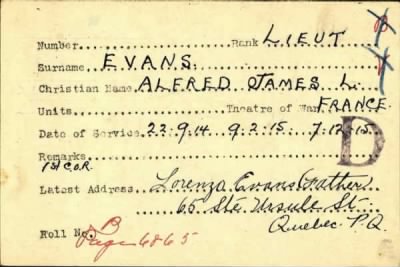 B
Number Rank LIEUT
Surname EVANS.
Christian Name ALFRED JAMES L.
Units Theatre of War FRANCE.
Date of Service 22.9.14 9.2.15 7.12.15
D
Remarks
1st C.O.R.
Latest Address Lorenzo Evans (Father)
65 Ste Ursule St.
Quebec. P.Q.
Roll No. B
Page 6865